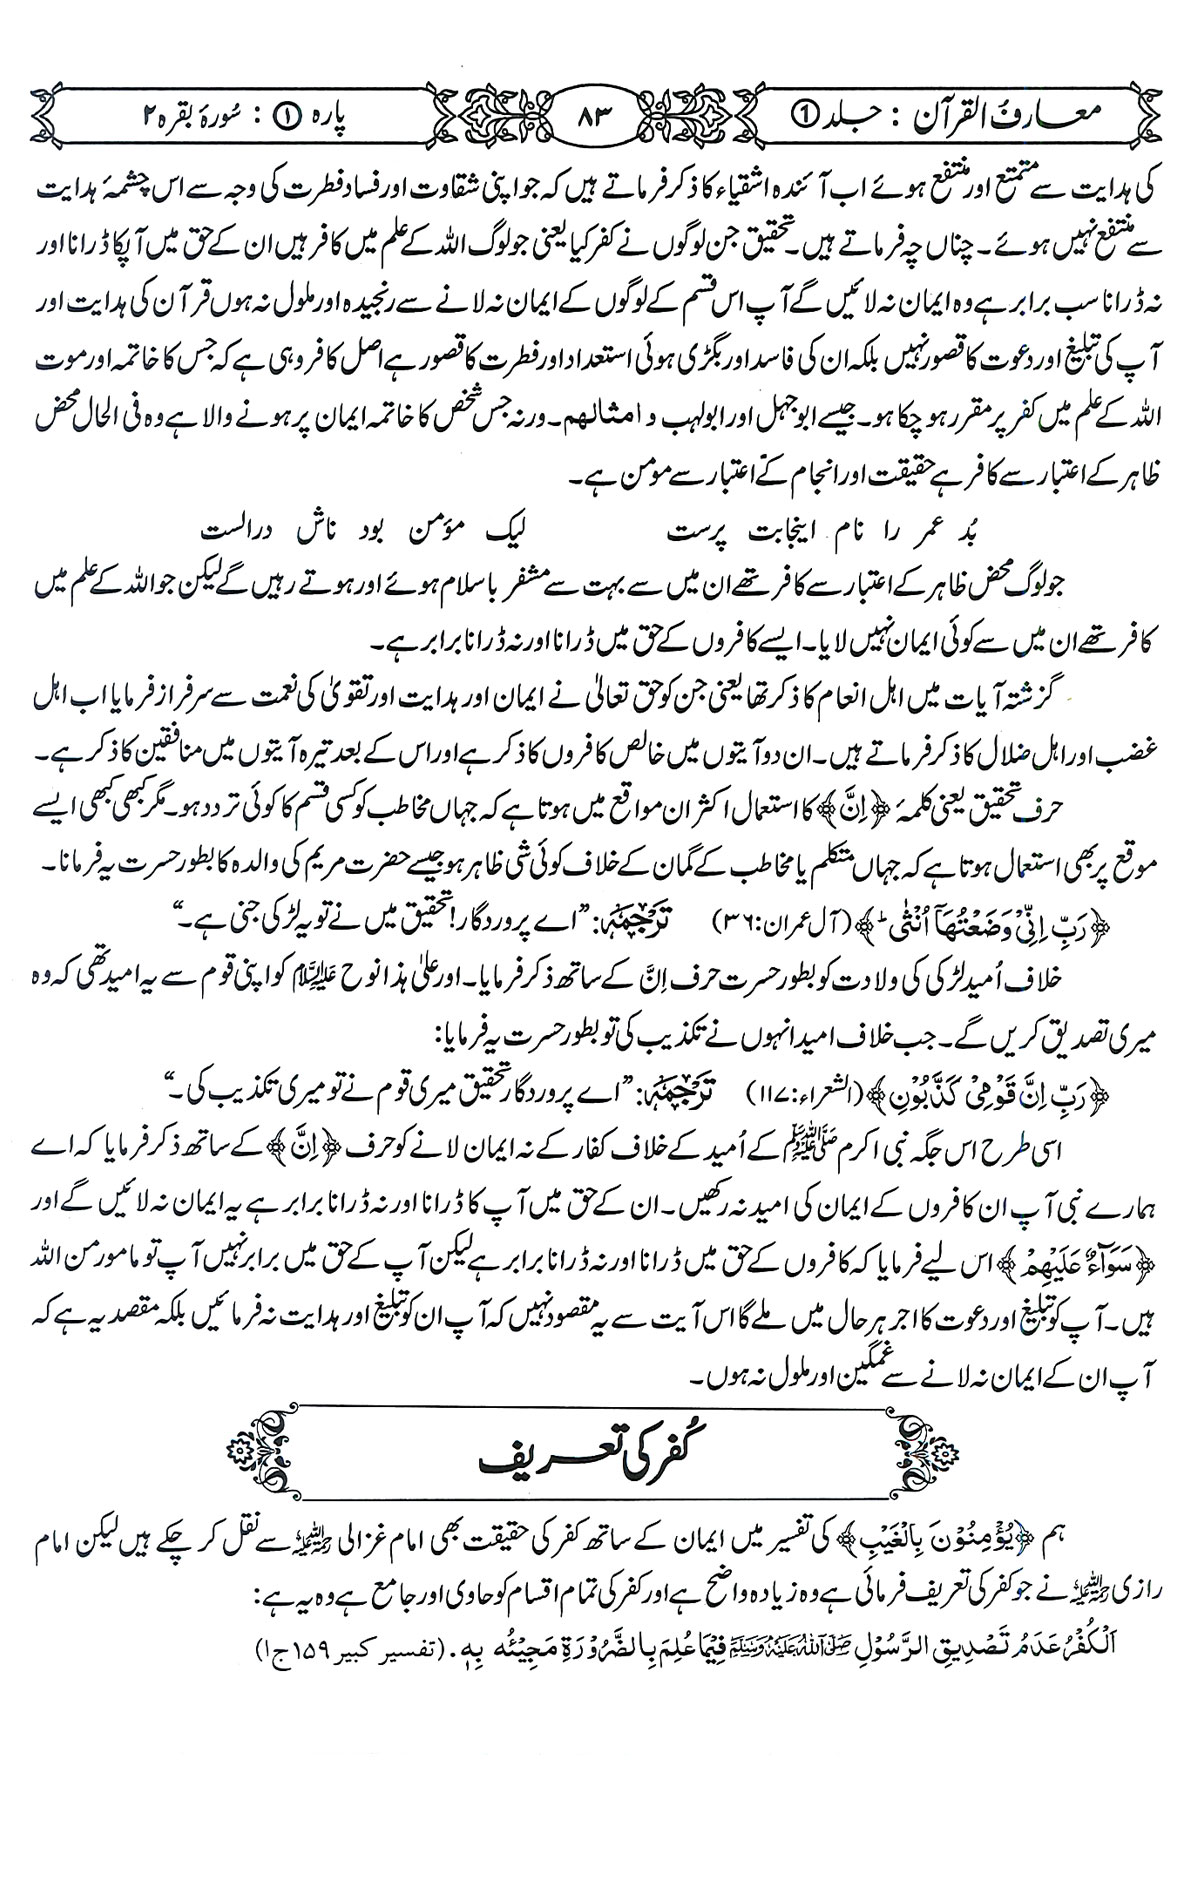 معارف القرآن : جلد ۱ ۸۳ پارہ ۱ : سُورۂ بقرہ ۲
کی ہدایت سے متمتع اور منتفع ہوئے اب آئندہ اشقیاء کا ذکر فرماتے ہیں کہ جو اپنی شقاوت اور فساد فطرت کی وجہ سے اس چشمۂ ہدایت
سے منتفع نہیں ہوئے۔ چناں چہ فرماتے ہیں۔ تحقیق جن لوگوں نے کفر کیا یعنی جو لوگ اللہ کے علم میں کافر ہیں ان کے حق میں آپکا ڈرانا اور
نہ ڈرانا سب برابر ہے وہ ایمان نہ لائیں گے آپ اس قسم کے لوگوں کے ایمان نہ لانے سے رنجیدہ اور ملول نہ ہوں قرآن کی ہدایت اور
آپ کی تبلیغ اور دعوت کا قصور نہیں بلکہ ان کی فاسد اور بگڑی ہوئی استعداد اور فطرت کا قصور ہے اصل کافر وہی ہے کہ جس کا خاتمہ اور موت
اللہ کے علم میں کفر پر مقرر ہو چکا ہو۔ جیسے ابو جہل اور ابولہب و امثالہم۔ ورنہ جس شخص کا خاتمہ ایمان پر ہونے والا ہے وہ فی الحال محض
ظاہر کے اعتبار سے کافر ہے حقیقت اور انجام کے اعتبار سے مؤمن ہے۔
بُد عمر را نام اینجا بت پرست لیک مؤمن بود ناش در الست
جو لوگ محض ظاہر کے اعتبار سے کافر تھے ان میں سے بہت سے مشفر باسلام ہوئے اور ہوتے رہیں گے لیکن جو اللہ کے علم میں
کافر تھے ان میں سے کوئی ایمان نہیں لایا۔ ایسے کافروں کے حق میں ڈرانا اور نہ ڈرانا برابر ہے۔
گزشتہ آیات میں اہل انعام کا ذکر تھا یعنی جن کو حق تعالیٰ نے ایمان اور ہدایت اور تقویٰ کی نعمت سے سرفراز فرمایا اب اہل
غضب اور اہل ضلال کا ذکر فرماتے ہیں۔ ان دو آیتوں میں خالص کافروں کا ذکر ہے اور اس کے بعد تیرہ آیتوں میں منافقین کا ذکر ہے۔
حرف تحقیق یعنی کلمۂ ﴿اِنَّ﴾ کا استعمال اکثر ان مواقع میں ہوتا ہے کہ جہاں مخاطب کو کسی قسم کا کوئی تردد ہو۔ مگر کبھی کبھی ایسے
موقع پر بھی استعمال ہوتا ہے کہ جہاں متکلم یا مخاطب کے گمان کے خلاف کوئی شی ظاہر ہو جیسے حضرت مریم کی والدہ کا بطور حسرت یہ فرمانا۔
﴿رَبِّ اِنِّیْ وَضَعْتُهَاۤ اُنْثٰیؕ﴾ (آل عمران: ۳۶) تَرْجَمَہ: ”اے پروردگار! تحقیق میں نے تو یہ لڑکی جنی ہے۔“
خلاف اُمید لڑکی کی ولادت کو بطور حسرت حرف اِنَّ کے ساتھ ذکر فرمایا۔ اور علیٰ ہذا نوح علیہ السلام کو اپنی قوم سے یہ امید تھی کہ وہ
میری تصدیق کریں گے۔ جب خلاف امید انہوں نے تکذیب کی تو بطور حسرت یہ فرمایا:
﴿رَبِّ اِنَّ قَوْمِیْ كَذَّبُوْنِ﴾ (الشعراء: ۱۱۷) تَرْجَمَہ: ”اے پروردگار تحقیق میری قوم نے تو میری تکذیب کی۔“
اسی طرح اس جگہ نبی اکرم ﷺ کے اُمید کے خلاف کفار کے نہ ایمان لانے کو حرف ﴿اِنَّ﴾ کے ساتھ ذکر فرمایا کہ اے
ہمارے نبی آپ ان کافروں کے ایمان کی امید نہ رکھیں۔ ان کے حق میں آپ کا ڈرانا اور نہ ڈرانا برابر ہے یہ ایمان نہ لائیں گے اور
﴿سَوَآءٌ عَلَیْهِمْ﴾ اس لیے فرمایا کہ کافروں کے حق میں ڈرانا اور نہ ڈرانا برابر ہے لیکن آپ کے حق میں برابر نہیں آپ تو مامور من اللہ
ہیں۔ آپ کو تبلیغ اور دعوت کا اجر ہر حال میں ملے گا اس آیت سے یہ مقصود نہیں کہ آپ ان کو تبلیغ اور ہدایت نہ فرمائیں بلکہ مقصد یہ ہے کہ
آپ ان کے ایمان نہ لانے سے غمگین اور ملول نہ ہوں۔
کُفر کی تعریف
ہم ﴿یُؤْمِنُوْنَ بِالْغَیْبِ﴾ کی تفسیر میں ایمان کے ساتھ کفر کی حقیقت بھی امام غزالی رحمۃ اللہ علیہ سے نقل کر چکے ہیں لیکن امام
رازی رحمۃ اللہ علیہ نے جو کفر کی تعریف فرمائی ہے وہ زیادہ واضح ہے اور کفر کی تمام اقسام کو حاوی اور جامع ہے وہ یہ ہے:
اَلْكُفْرُ عَدَمُ تَصْدِیْقِ الرَّسُوْلِ صَلَّی اللهُ عَلَیْهِ وَسَلَّمَ فِیْمَا عُلِمَ بِالضَّرُوْرَةِ مَجِیْئُه بِهٖ. (تفسیر کبیر ۱۵۹ ج ۱)